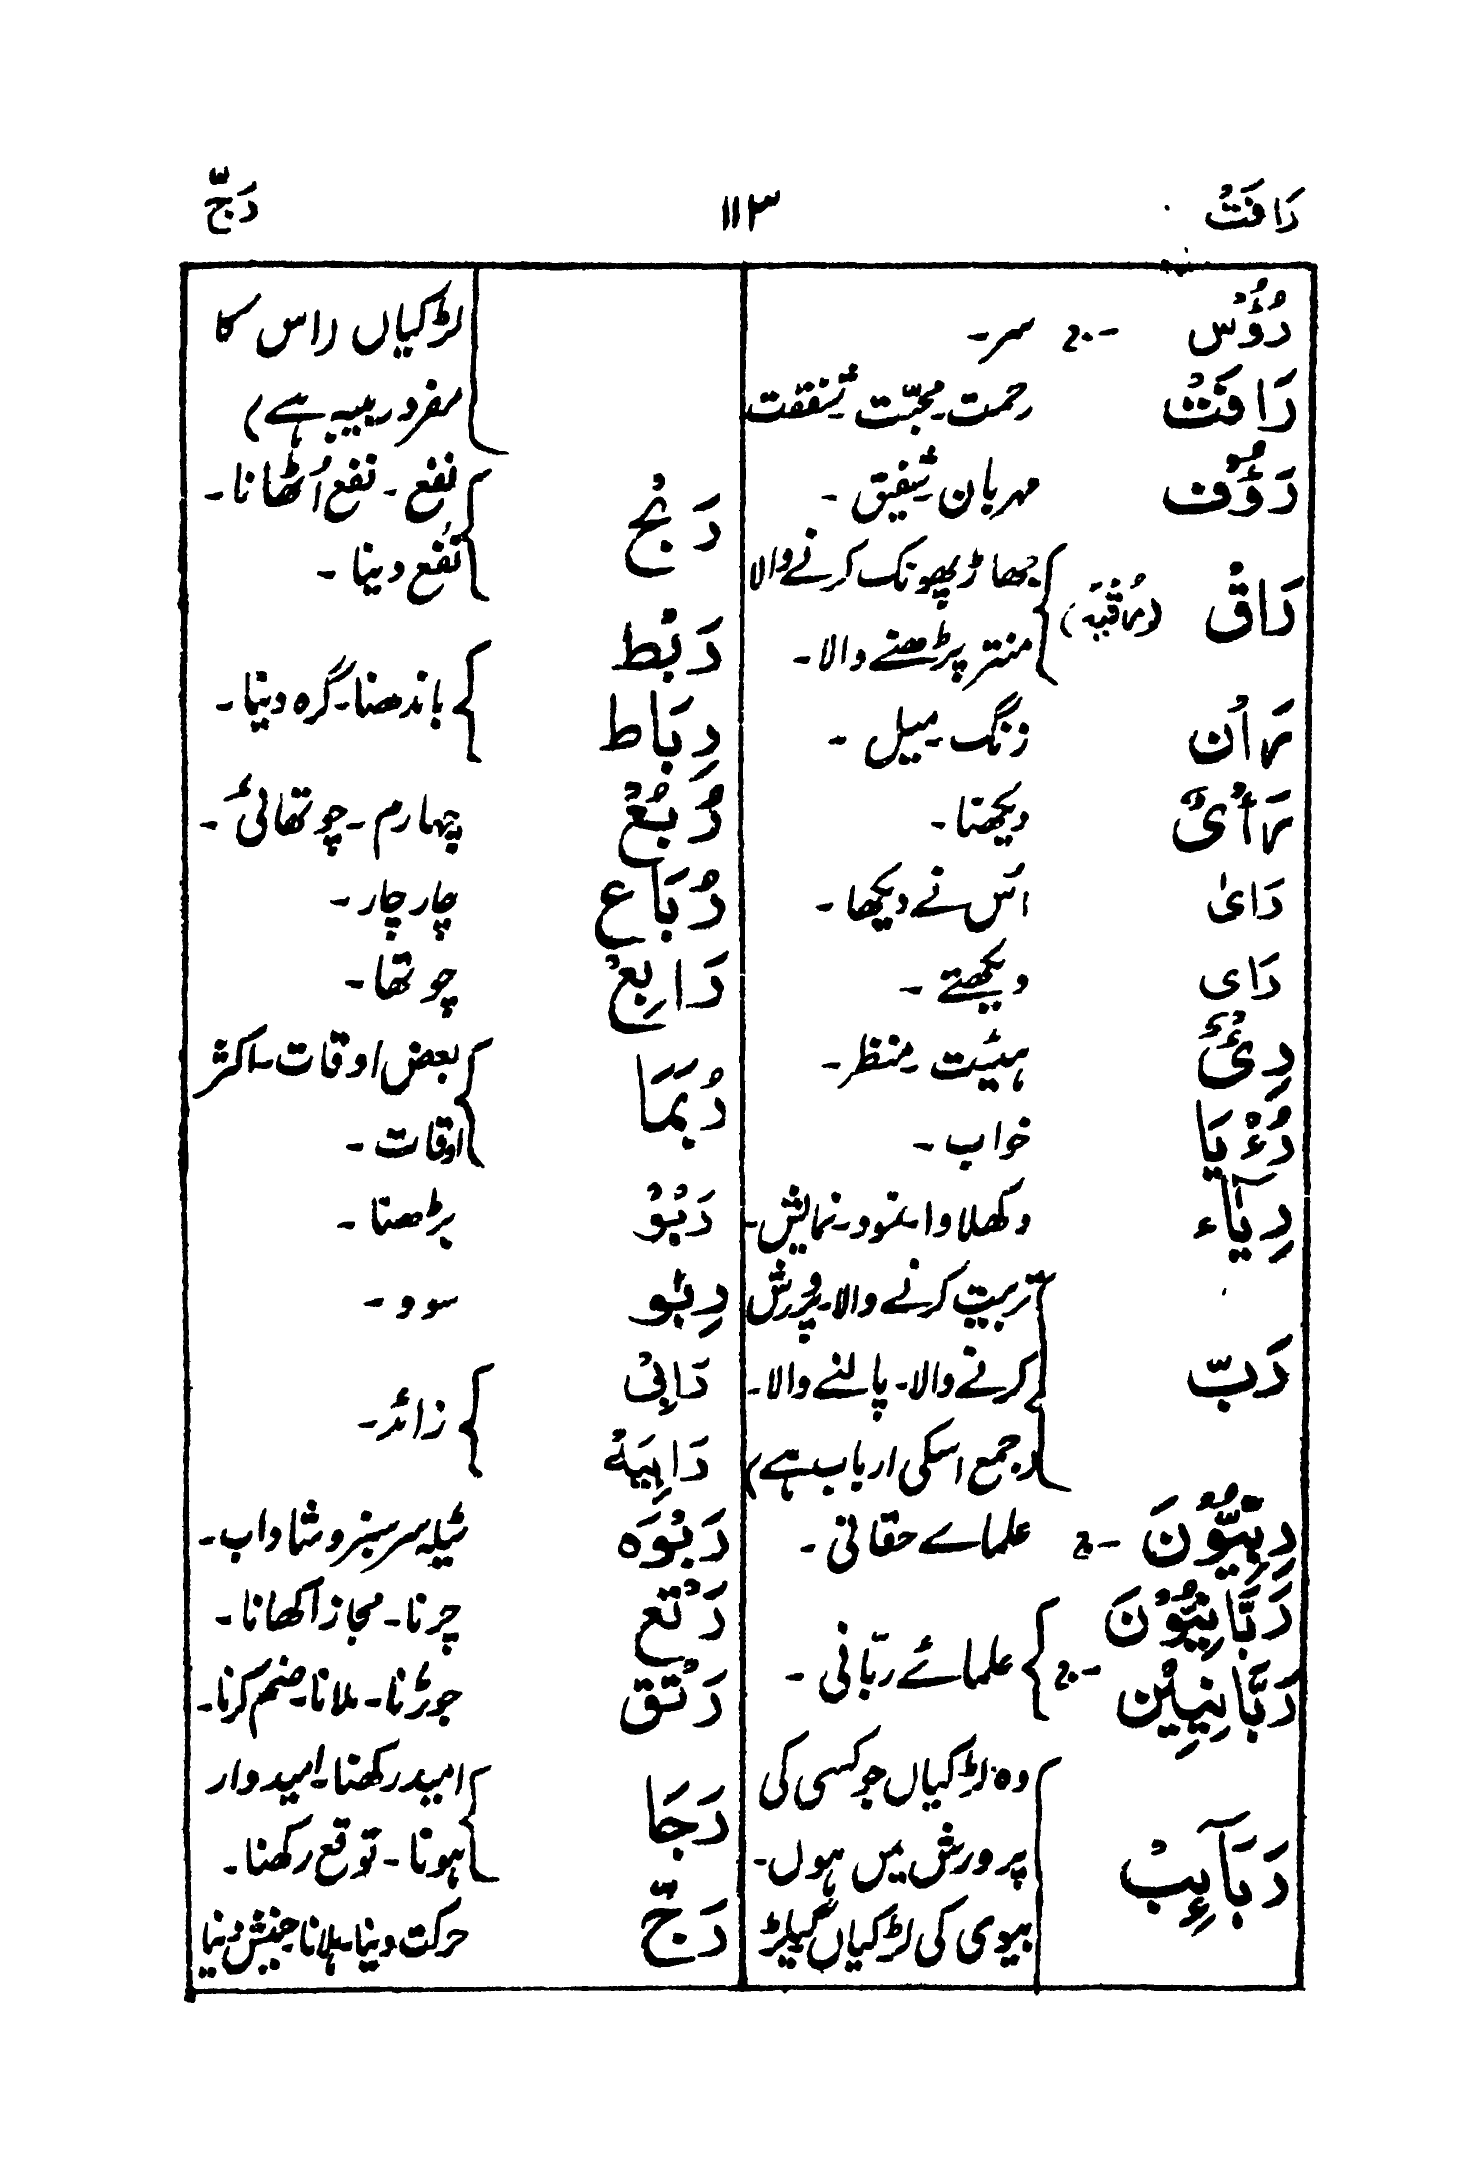 رَافَتُ ۱۱۳ رَجّ
رُؤُسْ -ج- سر-
رَافَتُ رحمت- محبّت- شفقت
رَؤُف مہربان- شفیق-
رَاقْ (رُقیَہ) جھاڑ پھونک کرنے والا
منتر پڑھنے والا-
رَانَ زنگ- میل-
رَأْیُ دیکھنا-
رَایٰ اُس نے دیکھا-
رَای دیکھتے-
رِئْیٌ ہیئت- منظر-
رُءْیَا خواب-
رِیَآء دکھلاوا- نمود- نمایش-
رَبّ تربیت کرنے والا- پرورش
کرنے والا- پالنے والا-
(جمع اسکی ارباب ہے)
رِبِّیُّوْنَ -ج علماے حقانی-
رَبَّانِیُّوْنَ
رَبَّانِیِیْن -ج- علمائے ربّانی-
رَبَآئِبْ وہ لڑکیاں جو کسی کی
پرورش میں ہوں-
بیوی کی لڑکیاں گیلڑ
لڑکیاں (اس کا
مفرد ربیبہ ہے)
رِبْح نفع- نفع اُٹھانا-
نفع دینا-
رَبْط
رِبَاط باندھنا- گرہ دینا-
رُبُعْ چہارم- چوتھائی-
رُبَاع چار چار-
رَابِعْ چوتھا-
رُبَمَا بعض اوقات- اکثر
اوقات-
رَبْوُ بڑھنا-
رِبٰو سود-
رَابِیْ
رَابِیَهْ زائد-
رَبْوَہ ٹیلہ سرسبز و شاداب-
رَتْع چرنا- مجازاً کھانا-
رَتْق جوڑنا- ملانا- ضم کرنا-
رَجَا امید رکھنا- امیدوار
ہونا- توقع رکھنا-
رَجّ حرکت دینا- ہلانا- جنبش دینا